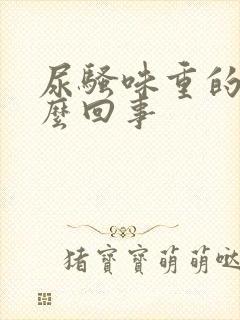 尿騷味重的
麼回事
猪寶寶萌萌哒